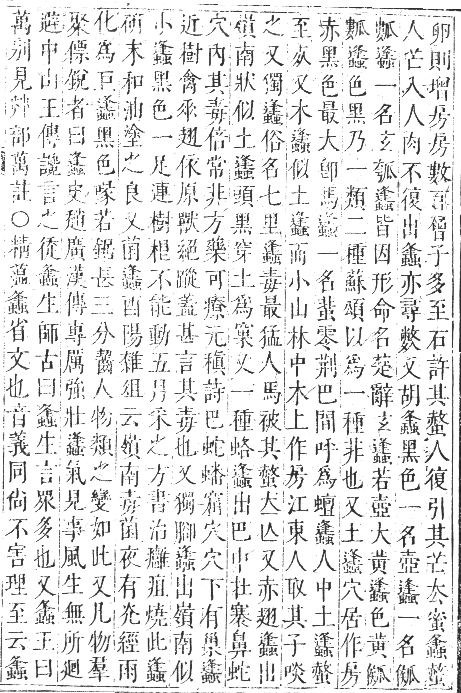 卵則增房房數言層子多至石許其螫人復引其芒厺蜜螽螫
人芒入人肉不復出螽亦尋斃又胡螽黑色一名壺螽一名瓠
瓢螽一名玄瓠螽皆因形命名楚辭玄螽若壺大黃螽色黃瓠
瓢螽色黑乃一類二種蘇頌以爲一種非也又土螽穴居作房
赤黑色最大卽馬螽一名蜚零荆巴間呼爲蟺螽人中土螽螫
至𣦸又木螽似土螽而小山林中木上作房江東人取其子啖
之又獨螽俗名七里螽毒最猛人馬被其螫大亾又赤翅螽出
嶺南狀似土螽頭黑穿土爲窠又一種蛒螽出巴中壯塞鼻蛇
穴內其毒倍常非方藥可療元稹詩巴蛇蟠窟穴穴下有巢螽
近樹禽𣦸翅依原獸絕蹤蓋甚言其毒也又獨腳螽出嶺南似
小螽黑色一足連樹根不能動五月采之方書治癰疽燒此螽
研末和油塗之良又菌螽酉陽雜組云嶺南毒菌夜有充經雨
化爲巨螽黑色喙若鋸長三分齧人物類之變如此又凡物羣
聚傈銳者曰螽史趙廣漢傳專厲強壯螽氣見事風生無所迴
避中山王傳讒言之徒螽生師古曰螽生言眾多也又螽王曰
萬别見艸部萬註○精薀螽省文也音義同尙不害理至云螽